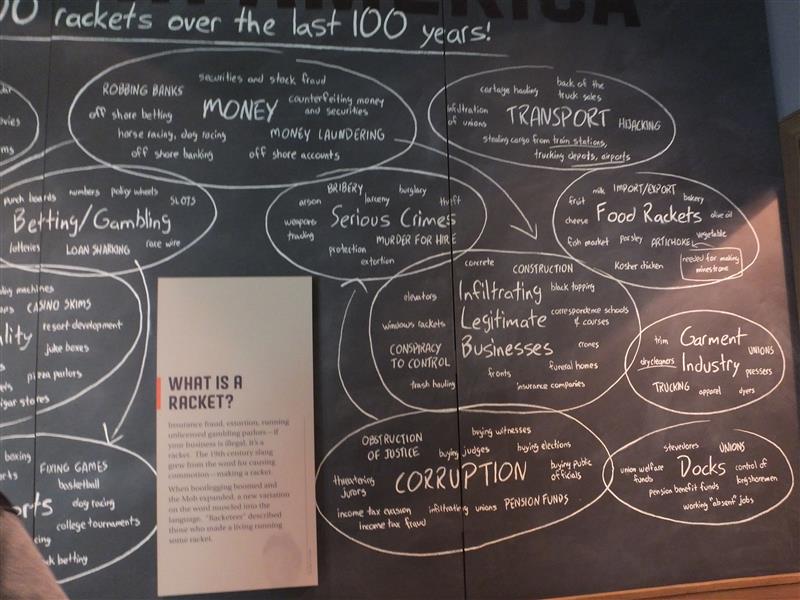 AMERICA
rackets over the last 100 years!
ROBBING BANKS
securities and stock fraud
MONEY
counterfeiting money
and securities
off shore betting
horse racing, dog racing
MONEY LAUNDERING
off shore banking
off shore accounts
cartage hauling
back of the
truck sales
infiltration
of unions
TRANSPORT
HIJACKING
stealing cargo from train stations,
trucking depots, airports
punch boards
numbers
policy wheels
SLOTS
Betting/Gambling
lotteries
LOAN SHARKING
race wire
BRIBERY
burglary
arson
larceny
theft
weapons
trading
Serious Crimes
MURDER FOR HIRE
protection
extortion
milk
IMPORT/EXPORT
fruit
bakery
cheese
Food Rackets
olive oil
fish market
parsley
ARTICHOKE
vegetable
Kosher chicken
needed for making
minestrone
machines
CASINO SKIMS
resort development
juke boxes
pizza parlors
concrete
CONSTRUCTION
elevators
Infiltrating
black topping
windows rackets
Legitimate
correspondence schools
& courses
CONSPIRACY
TO CONTROL
Businesses
crones
fronts
funeral homes
trash hauling
insurance companies
trim
Garment
UNIONS
drycleaners
Industry
pressers
TRUCKING
apparel
dyers
boxing
FIXING GAMES
basketball
dog racing
college tournaments
betting
OBSTRUCTION
OF JUSTICE
buying witnesses
buying judges
buying elections
threatening
jurors
CORRUPTION
buying public
officials
income tax evasion
infiltrating unions
PENSION FUNDS
income tax fraud
stevedores
UNIONS
union welfare
funds
Docks
control of
longshoremen
pension benefit funds
working "absent" jobs
WHAT IS A
RACKET?
Insurance fraud, extortion, running
unlicensed gambling parlors—if
your business is illegal, it's a
racket. The 19th century slang
grew from the word for causing
commotion—making a racket.
When bootlegging boomed and
the Mob expanded, a new variation
on the word muscled into the
language. "Racketeer" described
those who made a living running
some racket.